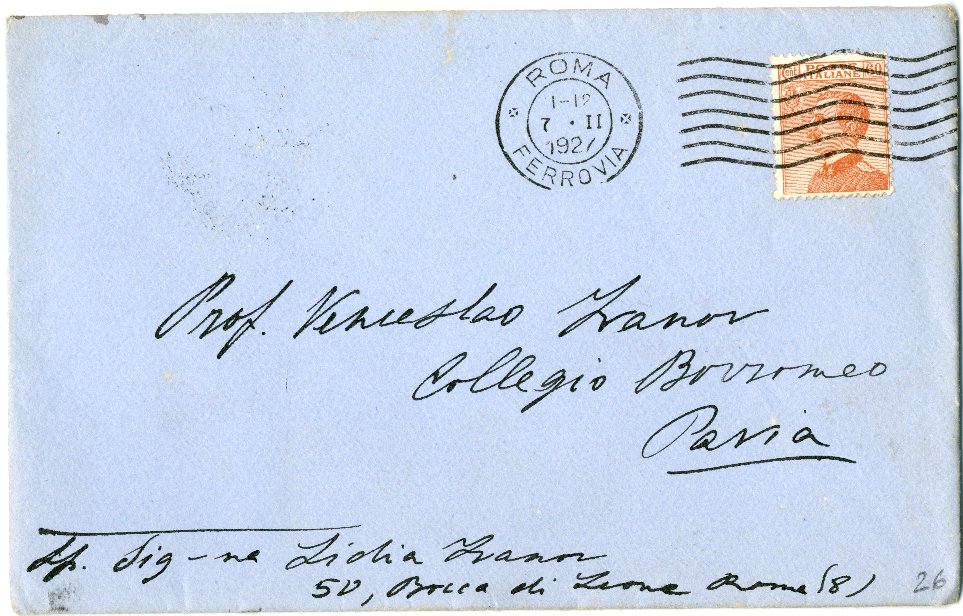 ROMA
1-12
7 • II
1927
FERROVIA
Cent. POSTE 60
ITALIANE
Prof. Venceslao Ivanov
Collegio Borromeo
Pavia
Sp. Sig-na Lidia Ivanov
50, Bocca di Leone Roma (8)
26